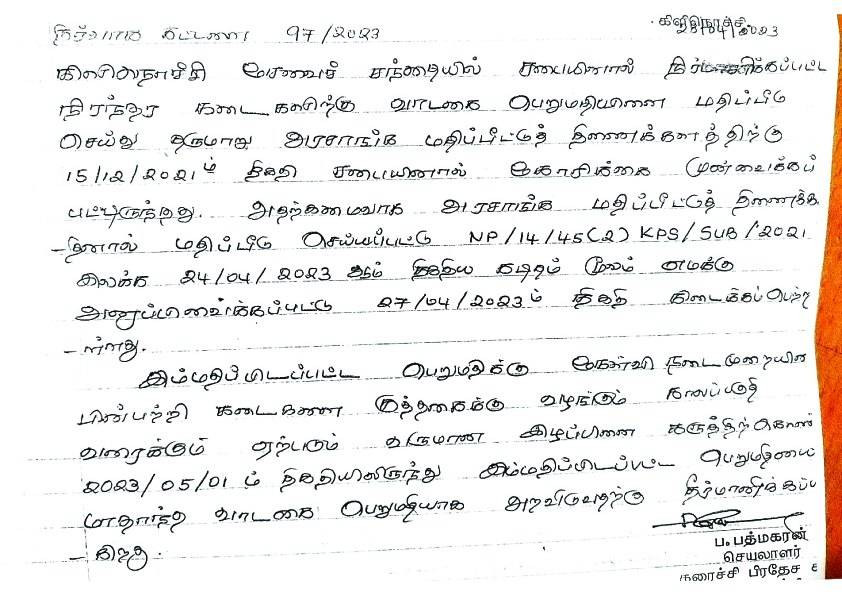 நிர்வாக கட்டளை 97/2023
கிளிநொச்சி
28/04/2023
கிளிநொச்சி சேவைச் சந்தையில் சபையினால் நிர்மாணிக்கப்பட்ட
நிரந்தர கடைகளிற்கு வாடகை பெறுமதியினை மதிப்பீடு
செய்து தருமாறு அரசாங்க மதிப்பீட்டுத் திணைக்களத்திற்கு
15/12/2021ம் திகதி சபையினால் கோரிக்கை முன்வைக்கப்
பட்டிருந்தது. அதற்கமைவாக அரசாங்க மதிப்பீட்டுத் திணைக்க
-தினால் மதிப்பீடு செய்யப்பட்டு NP/14/45(2) KPS/SUB/2021
இலக்க 24/04/2023 ஆம் திகதிய கடிதம் மூலம் எமக்கு
அனுப்பிவைக்கப்பட்டு 27/04/2023ம் திகதி கிடைக்கப்பெற்ற
-ள்ளது.
இம்மதிப்பிடப்பட்ட பெறுமதிக்கு கேள்வி நடைமுறையின
பின்பற்றி கடைகளை குத்தகைக்கு வழங்கும் காலப்பகுதி
வரைக்கும் ஏற்படும் வருமான இழப்பினை கருத்திற்கொண்
2023/05/01 ம் திகதியிலிருந்து இம்மதிப்பிடப்பட்ட பெறுமதியை
மாதாந்த வாடகை பெறுமதியாக அறவிடுவதற்கு தீர்மானிக்கப்ப
-கிறது.
ப. பத்மகரன்
செயலாளர்
கரைச்சி பிரதேச ச